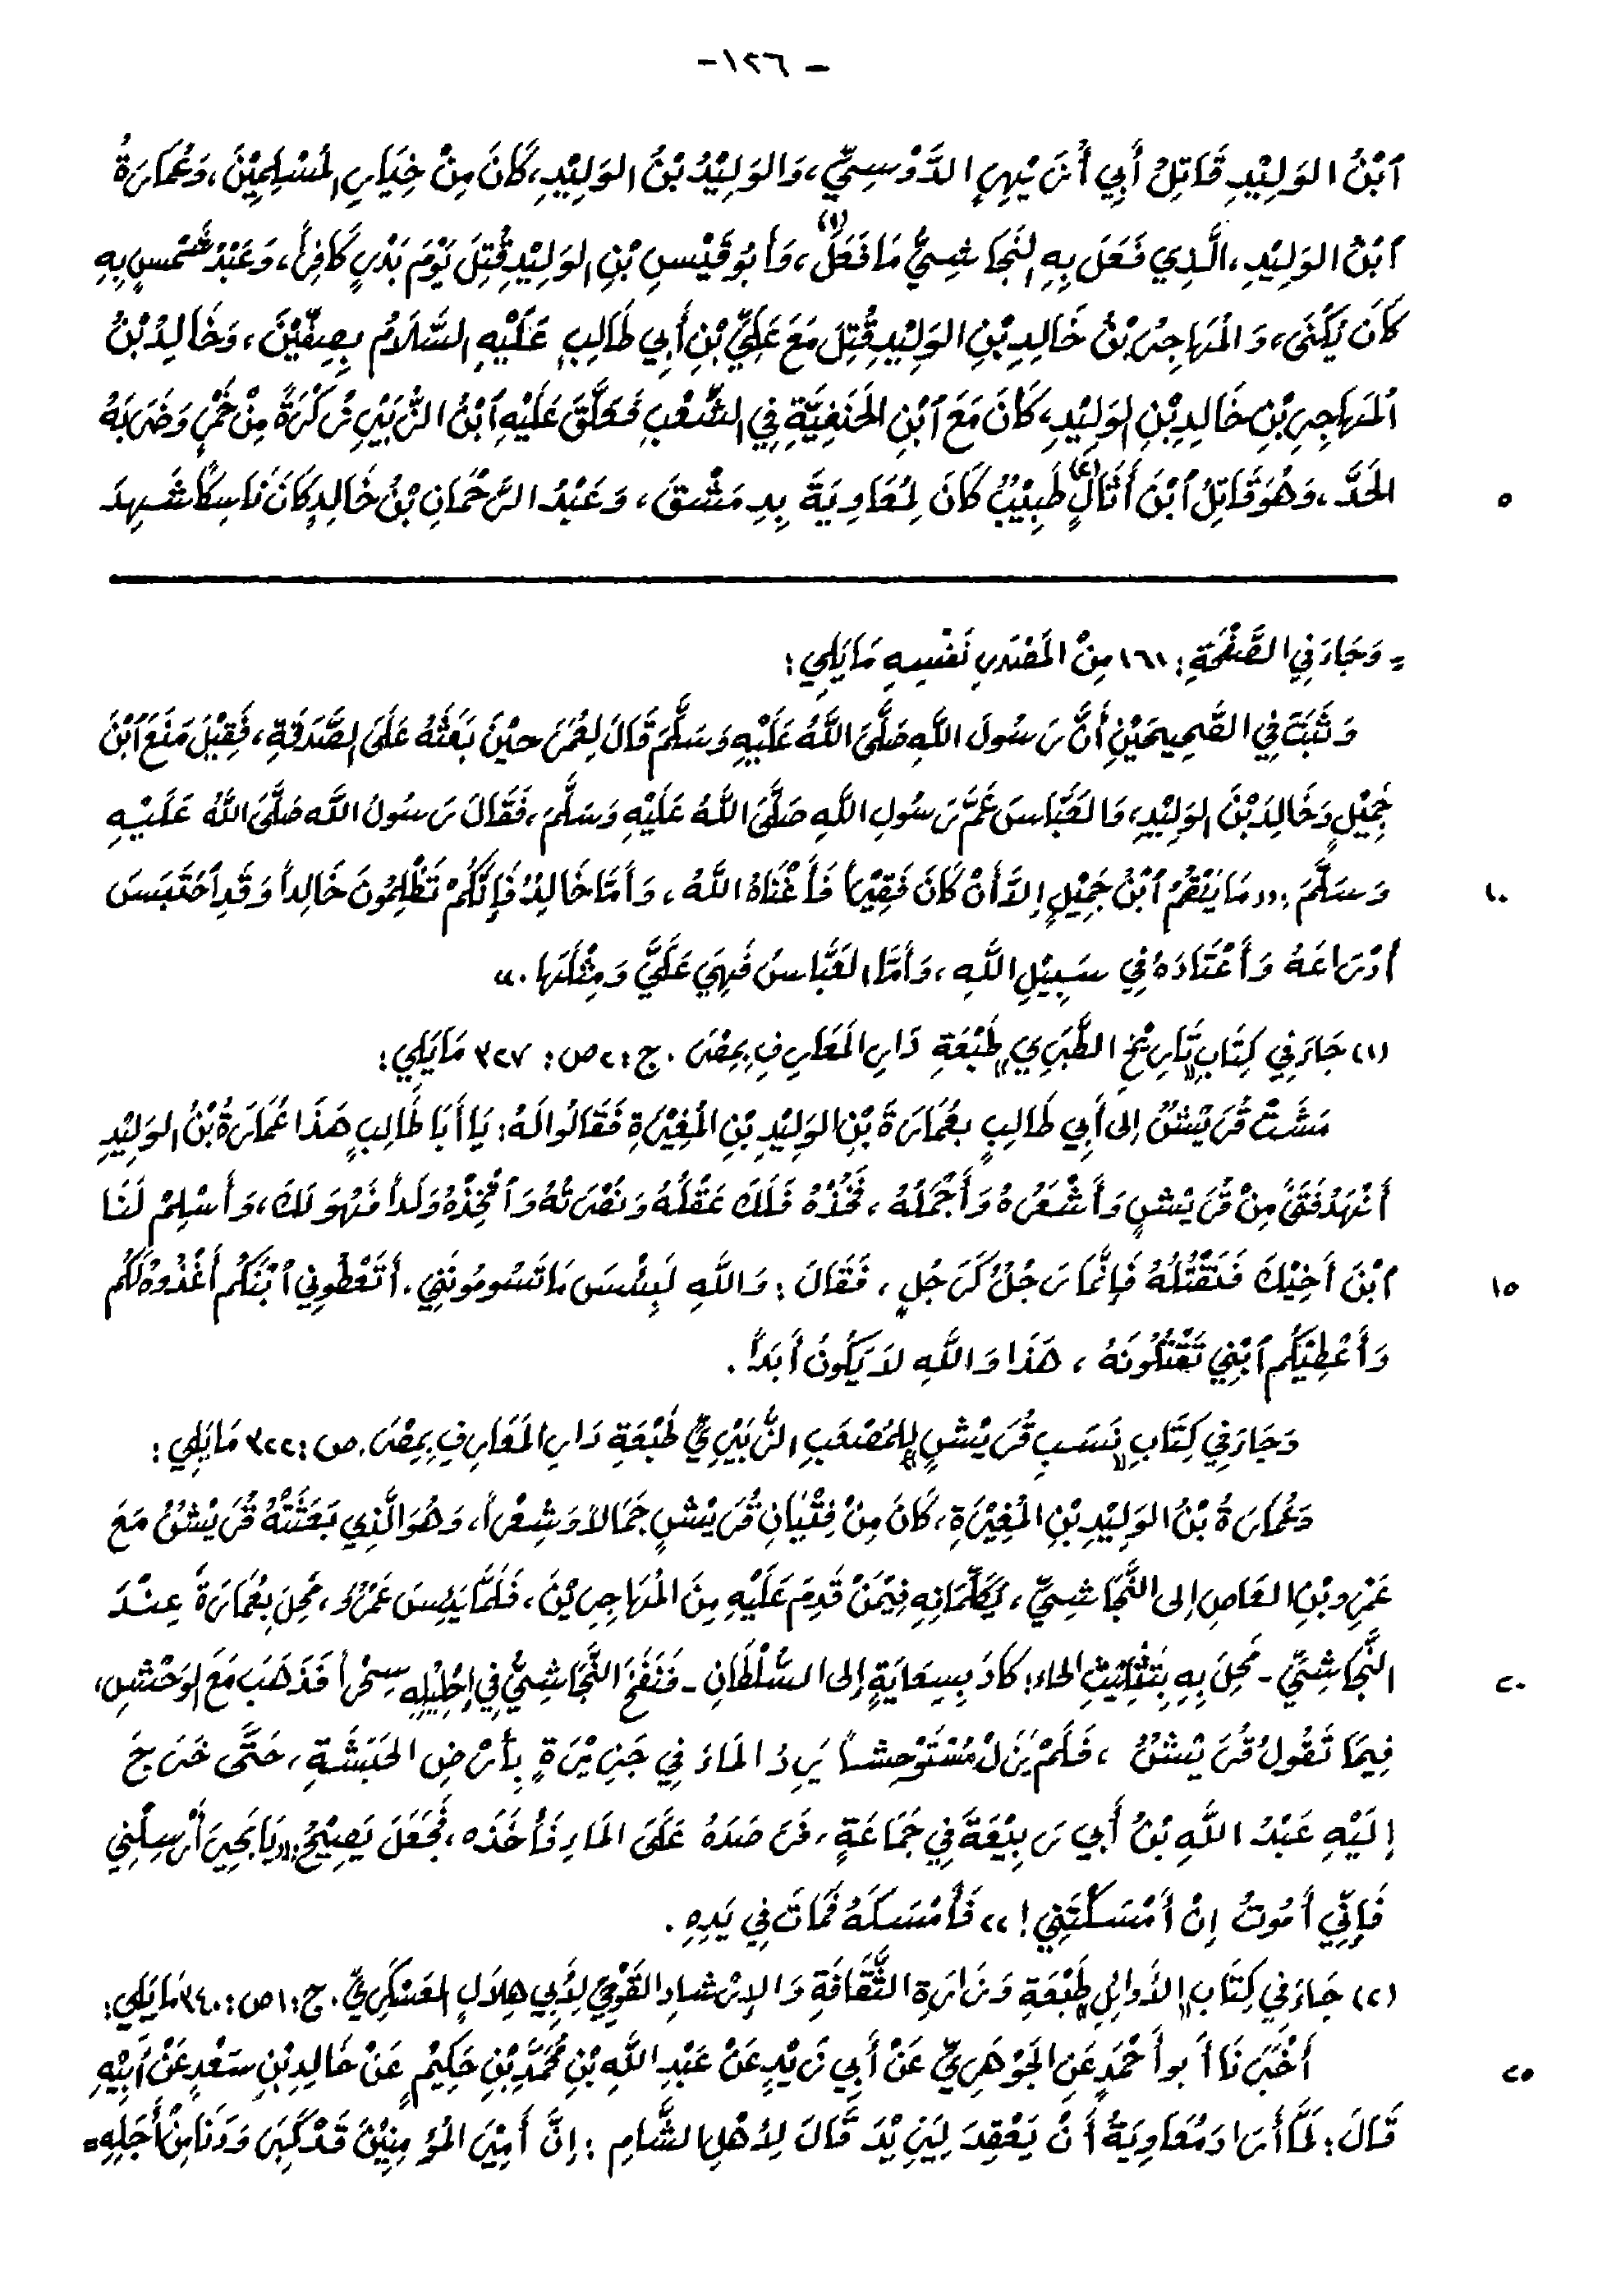 - ١٢٦ -
ٱبْنُ الوَلِيْدِ قَاتِلُ أَبِي أُزَيْهِرٍ الدَّوْسِيِّ، وَالوَلِيْدُ بْنُ الوَلِيْدِ، كَانَ مِنْ خِيَارِ المُسْلِمِيْنَ، وَعُمَارَةُ
ٱبْنُ الوَلِيْدِ، الَّذِي فَعَلَ بِهِ النَّجَاشِيُّ مَا فَعَلَ (١)، وَأَبُو قَيْسِ بْنِ الوَلِيْدِ قُتِلَ يَوْمَ بَدْرٍ كَافِراً، وَعَبْدُ شَمْسٍ بِهِ
كَانَ يُكْنَى، وَالمُهَاجِرُ بْنُ خَالِدِ بْنِ الوَلِيْدِ قُتِلَ مَعَ عَلِيِّ بْنِ أَبِي طَالِبٍ عَلَيْهِ السَّلَامُ بِصِفِّيْنَ، وَخَالِدُ بْنُ
ٱلمُهَاجِرِ بْنِ خَالِدِ بْنِ الوَلِيْدِ، كَانَ مَعَ ٱبْنِ الحَنَفِيَّةِ فِي الشِّعْبِ فَعَلَّقَ عَلَيْهِ ٱبْنُ الزُّبَيْرِ زُكْرَةً مِنْ خَمْرٍ وَضَرَبَهُ
الحَدَّ، وَهُوَ قَاتِلُ ٱبْنَ أُثَالٍ (٢) طَبِيْبٌ كَانَ لِمُعَاوِيَةَ بِدِمَشْقَ، وَعَبْدُ الرَّحْمَانِ بْنُ خَالِدٍ كَانَ نَاسِكاً شَهِدَ ٥
= وَجَاءَ فِي الصَّفْحَةِ: ١٦١ مِنْ المَصْدَرِ نَفْسِهِ مَا يَلِي:
وَثَبَتَ فِي الصَّحِيحَيْنِ أَنَّ رَسُولَ اللَّهِ صَلَّى اللَّهُ عَلَيْهِ وَسَلَّمَ قَالَ لِعُمَرَ حِيْنَ بَعَثَهُ عَلَى الصَّدَقَةِ، فَقِيْلَ مَنَعَ ٱبْنُ
جَمِيْلٍ وَخَالِدَ بْنَ الوَلِيْدِ، وَالعَبَّاسَ عَمَّ رَسُولِ اللَّهِ صَلَّى اللَّهُ عَلَيْهِ وَسَلَّمَ، فَقَالَ رَسُولُ اللَّهِ صَلَّى اللَّهُ عَلَيْهِ
وَسَلَّمَ: «مَا يَنْقِمُ ٱبْنُ جَمِيْلٍ إِلاَّ أَنْ كَانَ فَقِيْراً فَأَغْنَاهُ اللَّهُ، وَأَمَّا خَالِدٌ فَإِنَّكُمْ تَظْلِمُونَ خَالِداً وَقَدِ ٱحْتَبَسَ ١٠
أَدْرَاعَهُ وَأَعْتَادَهُ فِي سَبِيْلِ اللَّهِ، وَأَمَّا العَبَّاسُ فَهِيَ عَلَيَّ وَمِثْلُهَا.»
(١) جَاءَ فِي كِتَابِ «تَارِيْخِ الطَّبَرِيِ» طَبْعَةِ دَارِ المَعَارِفِ بِمِصْرَ. ج: ٢ ص: ٣٢٧ مَا يَلِي:
مَشَتْ قُرَيْشٌ إِلى أَبِي طَالِبٍ بِعُمَارَةَ بْنِ الوَلِيْدِ بْنِ المُغِيْرَةِ فَقَالُوا لَهُ: يَا أَبَا طَالِبٍ هَذَا عُمَارَةُ بْنُ الوَلِيْدِ
أَنْهَدُ فَتَىً مِنْ قُرَيْشٍ وَأَشْعَرُهُ وَأَجْمَلُهُ، فَخُذْهُ فَلَكَ عَقْلُهُ وَنَصْرَتُهُ وَٱتَّخِذْهُ وَلَداً فَهُوَ لَكَ، وَأَسْلِمْ لَنَا
ٱبْنَ أَخِيْكَ فَنَقْتُلُهُ فَإِنَّمَا رَجُلٌ كَرَجُلٍ، فَقَالَ: وَاللَّهِ لَبِئْسَ مَا تَسُومُونَنِي. أَتُعْطُونِي ٱبْنَكُم أَغْذُوهُ لَكُم ١٥
وَأُعْطِيْكُم ٱبْنِي تَقْتُلُونَهُ، هَذَا وَاللَّهِ لاَ يَكُونُ أَبَداً.
وَجَاءَ فِي كِتَابِ «نَسَبِ قُرَيْشٍ» لِلمُصْعَبِ الزُّبَيْرِيِّ طَبْعَةِ دَارِ المَعَارِفِ بِمِصْرَ. ص: ٣٢٢ مَا يَلِي:
وَعُمَارَةُ بْنُ الوَلِيْدِ بْنِ المُغِيْرَةِ، كَانَ مِنْ فِتْيَانِ قُرَيْشٍ جَمَالاً وَشِعْراً، وَهُوَ الَّذِي بَعَثَتْهُ قُرَيْشٌ مَعَ
عَمْرِو بْنِ العَاصِ إِلى النَّجَاشِيِّ، يُكَلِّمَانِهِ فِيْمَنْ قَدِمَ عَلَيْهِ مِنَ المُهَاجِرِيْنَ، فَلَمَّا يَئِسَ عَمْرٌو، مَحِلَ بِعُمَارَةَ عِنْدَ
النَّجَاشِيِّ - مَحِلَ بِهِ بِتَثْلِيْثِ الحاءِ: كادَ بِسِعَايَةٍ إِلى السُّلْطَانِ - فَنَفَخَ النَّجَاشِيُّ فِي إِحْلِيْلِهِ سِحْراً فَذَهَبَ مَعَ الوَحْشِ، ٢٠
فِيمَا تَقُولُ قُرَيْشٌ، فَلَمْ يَزَلْ مُسْتَوْحِشاً يَرِدُ المَاءَ فِي جَزِيْرَةٍ بِأَرْضِ الحَبَشَةِ، حَتَّى خَرَجَ
إِلَيْهِ عَبْدُ اللَّهِ بْنُ أَبِي رَبِيْعَةَ فِي جَمَاعَةٍ، فَرَصَدَهُ عَلَى المَاءِ فَأَخَذَه، فَجَعَلَ يَصِيْحُ: «يَا بَحِيرَ أَرْسِلْنِي
فَإِنِّي أَمُوتُ إِنْ أَمْسَكْتَنِي!» فَأَمْسَكَهُ فَمَاتَ فِي يَدِهِ.
(٢) جَاءَ فِي كِتَابِ «الأَوائِلِ» طَبْعَةِ وَزَارَةِ الثَّقَافَةِ وَالإِرْشَادِ القَوْمِيِّ لِأَبِي هِلَالٍ العَسْكَرِيِّ. ج: ١ ص: ٣٤٠ مَا يَلِي:
أَخْبَرَنَا أَبو أَحْمَدٍ عَنِ الجَوْهَرِيِّ عَنْ أَبِي زَيْدٍ عَنْ عَبْدِ اللَّهِ بْنِ مُحَمَّدِ بْنِ حَكِيْمٍ عَنْ خَالِدِ بْنِ سَعْدٍ عَنْ أَبِيْهِ ٢٥
قَالَ: لَمَّا أَرَادَ مُعَاوِيَةُ أَنْ يَعْقِدَ لِيَزِيْدَ قَالَ لِأَهْلِ الشَّامِ: إِنَّ أَمِيْرَ المُؤمِنِيْنَ قَدْ كَبِرَ وَدَنَا مِنْ أَجَلِهِ =